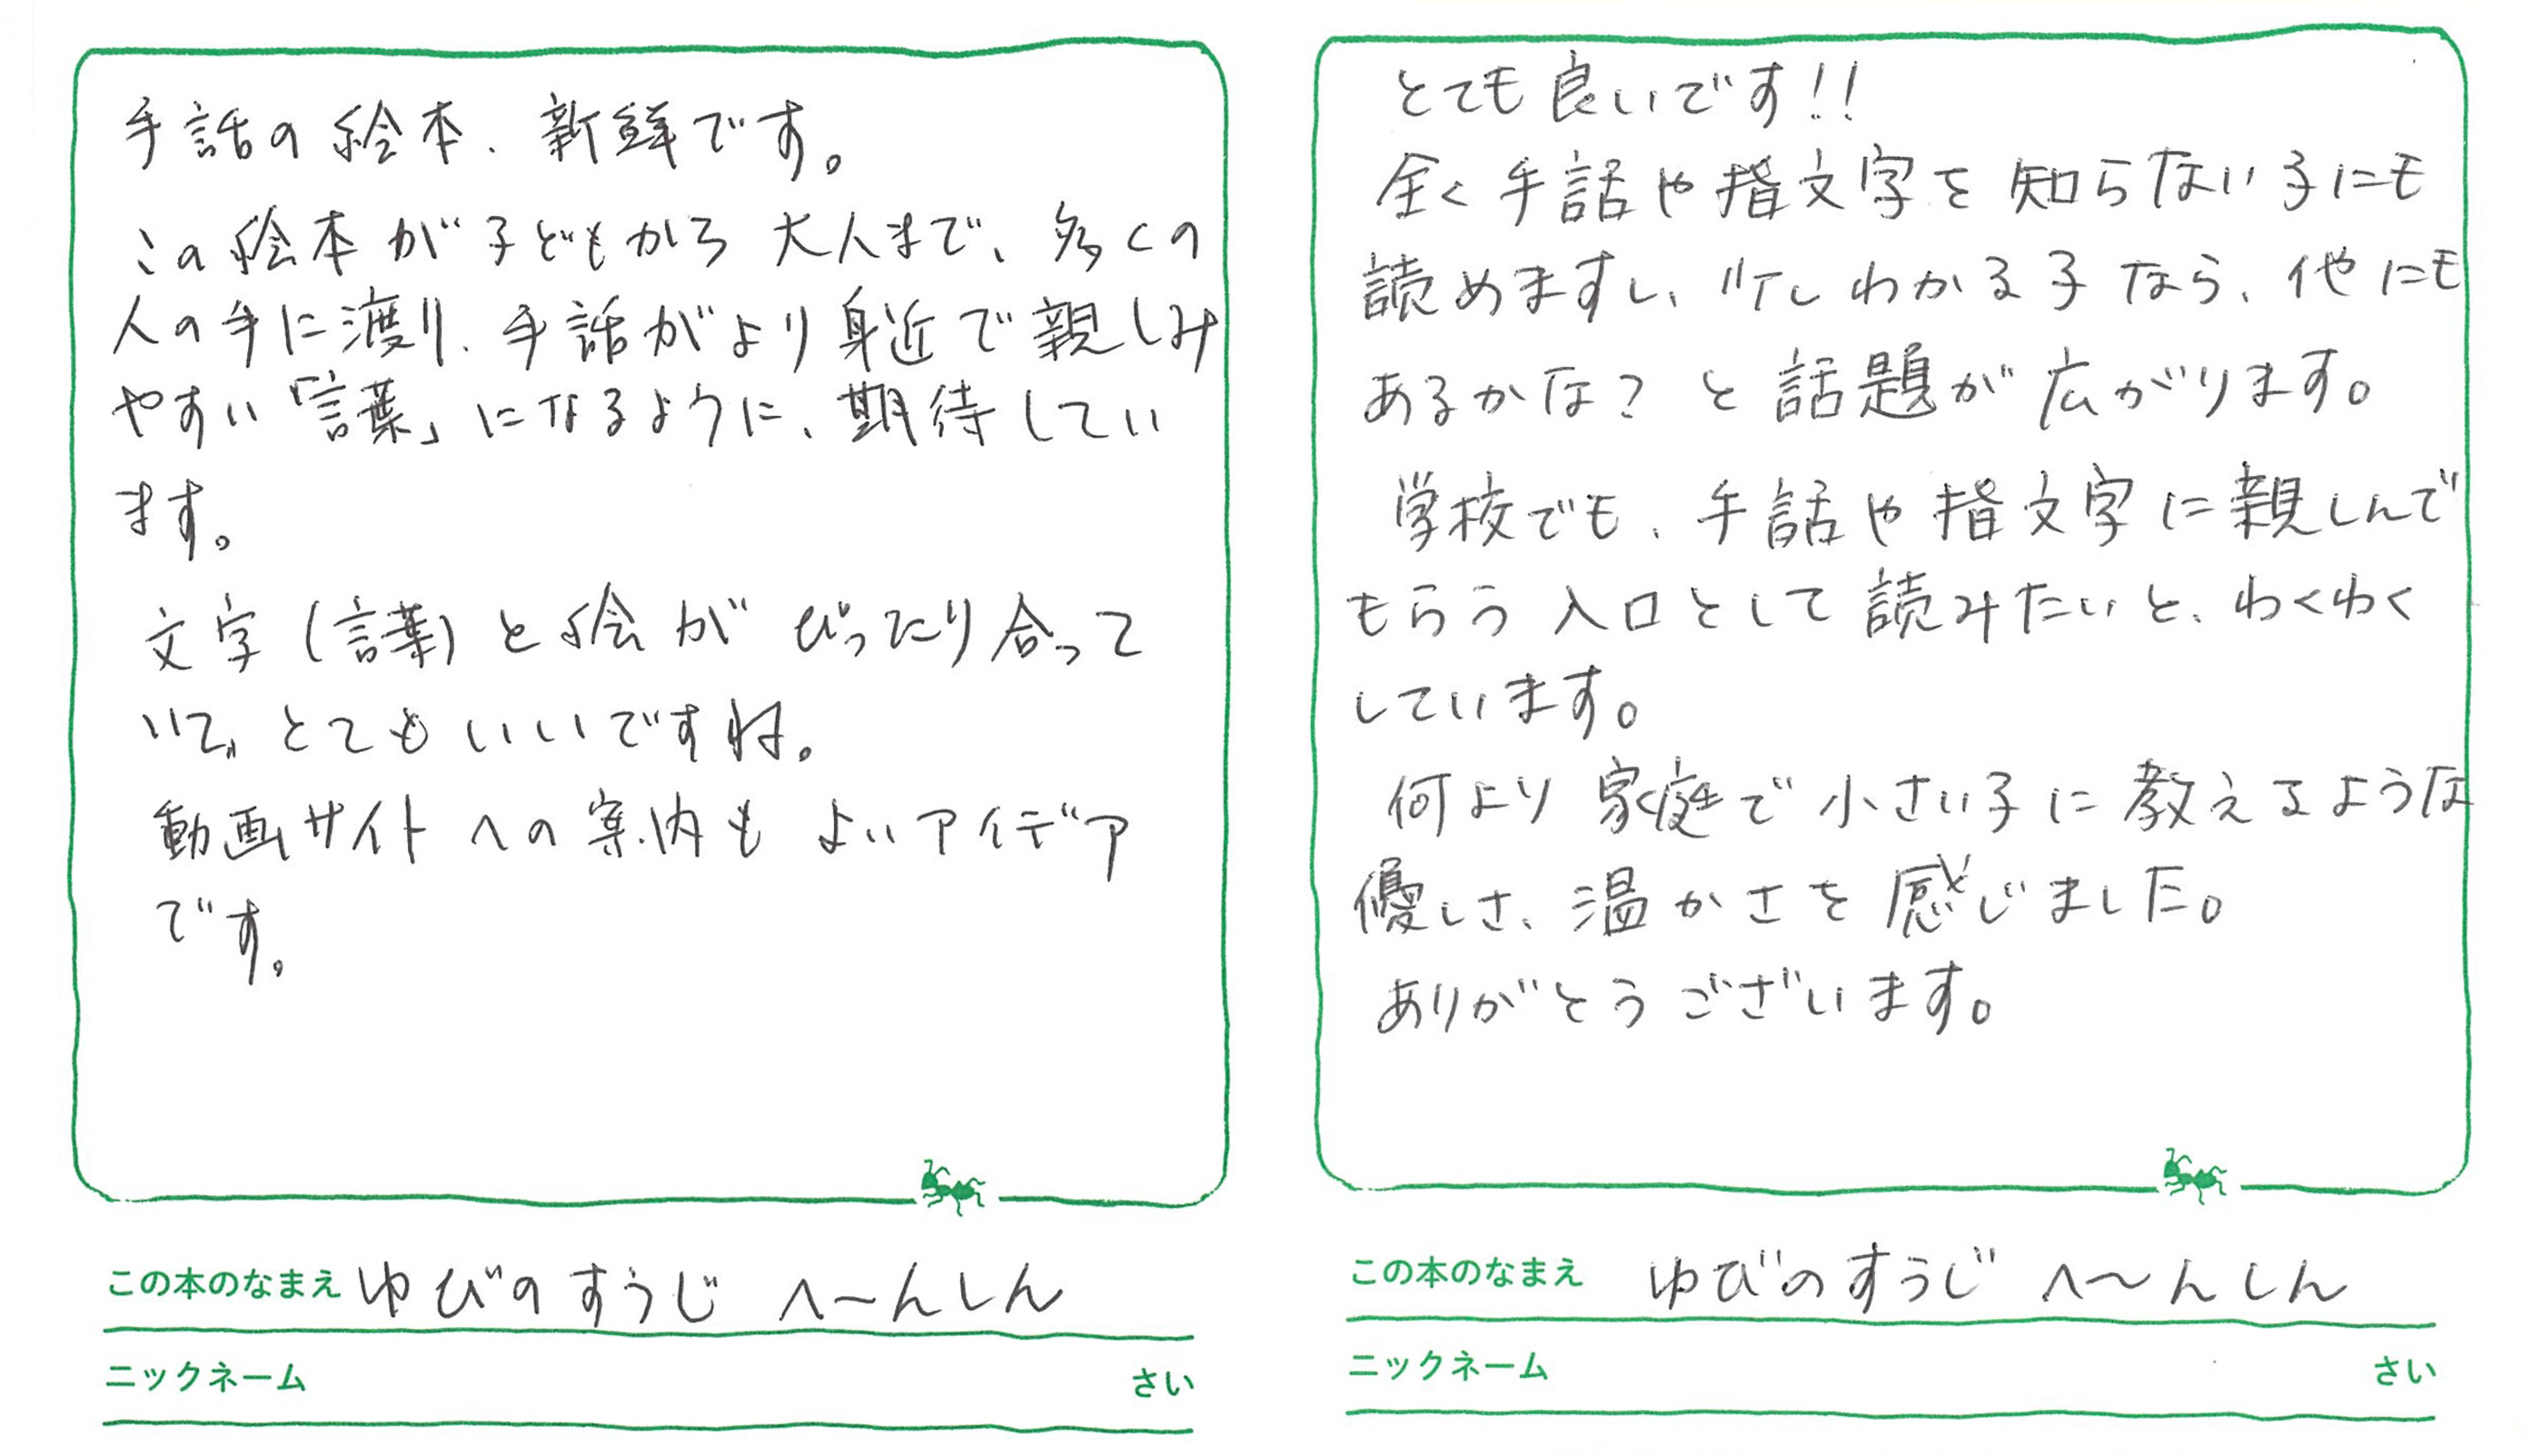 手話の絵本、新鮮です。
この絵本が子どもから大人まで、多くの
人の手に渡り、手話がより身近で親しみ
やすい「言葉」になるように、期待してい
ます。
文字(言葉)と絵がぴったり合って
いて、とてもいいですね。
動画サイトへの案内もよいアイデア
です。
この本のなまえ ゆびのすうじ へ〜んしん
ニックネーム さい
とても良いです!!
全く手話や指文字を知らない子にも
読めますし、少しわかる子なら、他にも
あるかな?と話題が広がります。
学校でも、手話や指文字に親しんで
もらう入口として読みたいと、わくわく
しています。
何より家庭で小さい子に教えるような
優しさ、温かさを感じました。
ありがとうございます。
この本のなまえ ゆびのすうじ へ〜んしん
ニックネーム さい